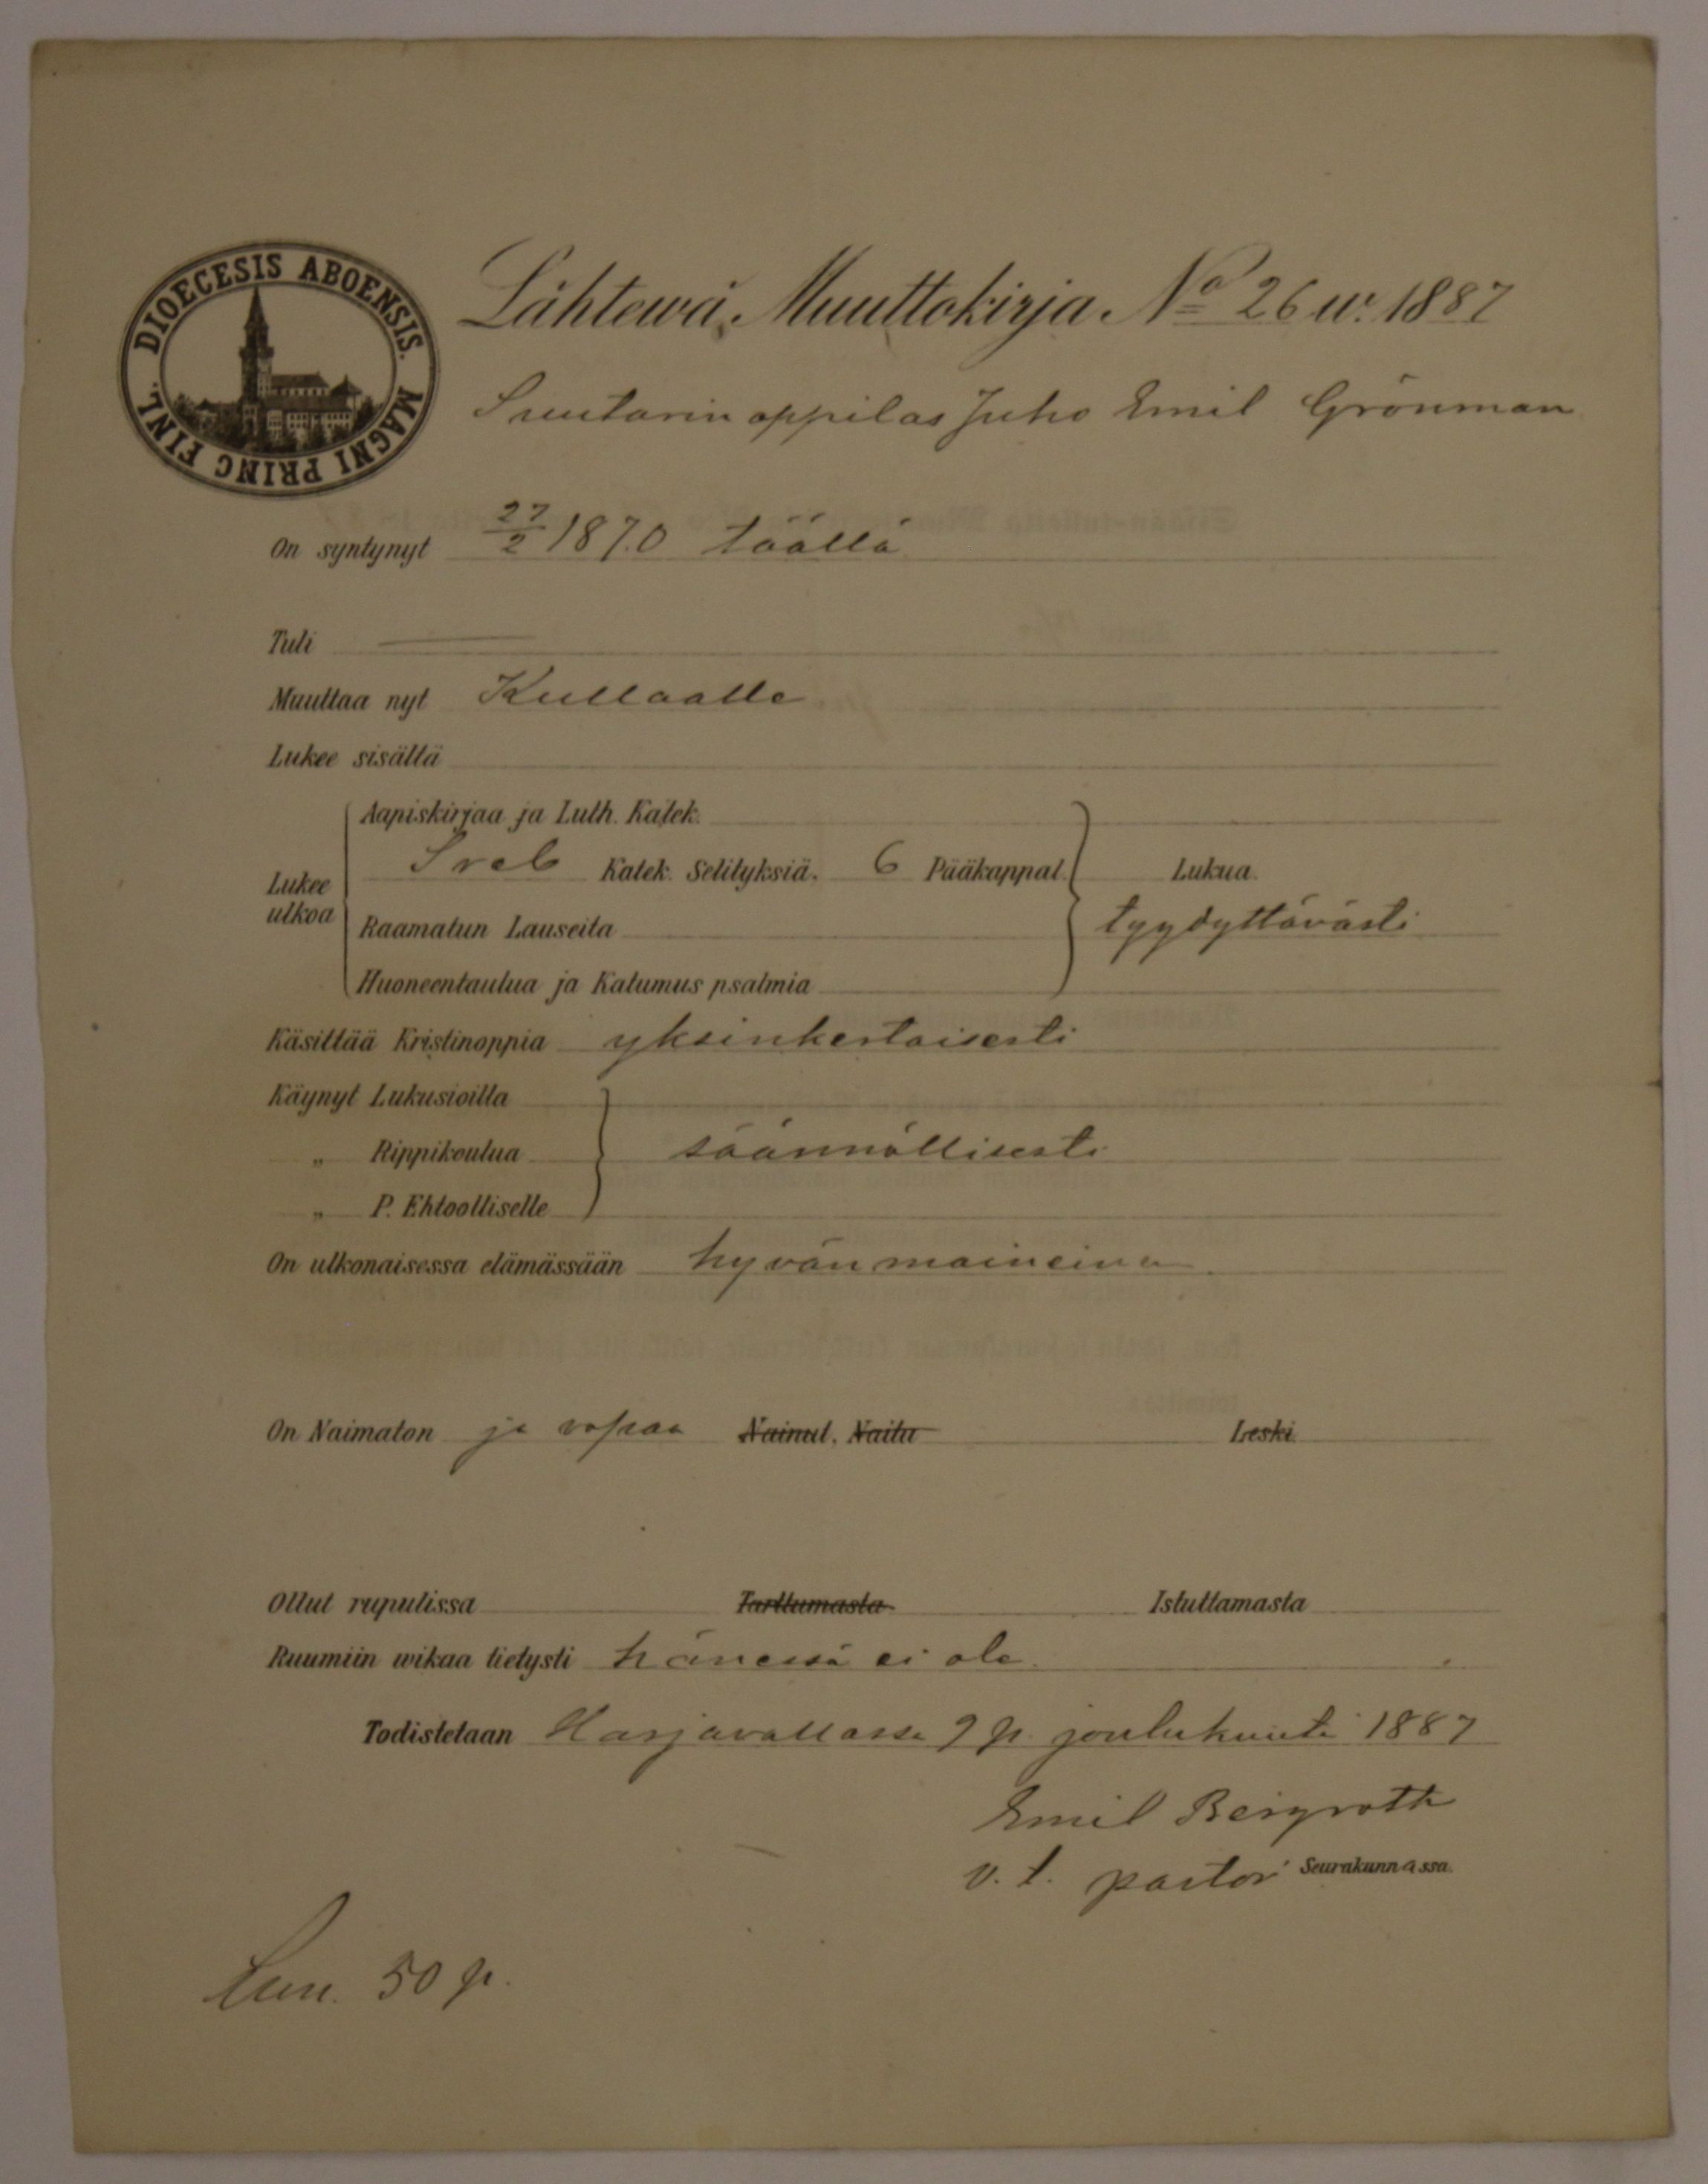 DIOECESIS ABOENSIS. MAGNI PRINC FINL.
Lähtewä Muuttokirja No 26 w. 1887
Suutarin oppilas Juho Emil Grönman
On syntynyt 27/2 1870 täällä
Tuli
Muuttaa nyt Kullaalle
Lukee sisältä
Aapiskirjaa ja Luth. Katek.
Lukee ulkoa Sveb Katek. Selityksiä. 6 Pääkappal. Lukua.
Raamatun Lauseita tyydyttävästi
Huoneentaulua ja Katumus psalmia
Käsittää Kristinoppia yksinkertaisesti
Käynyt Lukusioilla
„ Rippikoulua säännöllisesti
„ P. Ehtoolliselle
On ulkonaisessa elämässään hyvänmaineinen
On Naimaton ja vapaa Nainut, Naitu Leski.
Ollut rupulissa Tarttumasta Istuttamasta
Ruumiin wikaa tietysti hänessä ei ole.
Todistetaan Harjavallassa 9 p. joulukuuta 1887
Emil Bergroth
v. t. pastori Seurakunnassa.
Lun. 50 p.